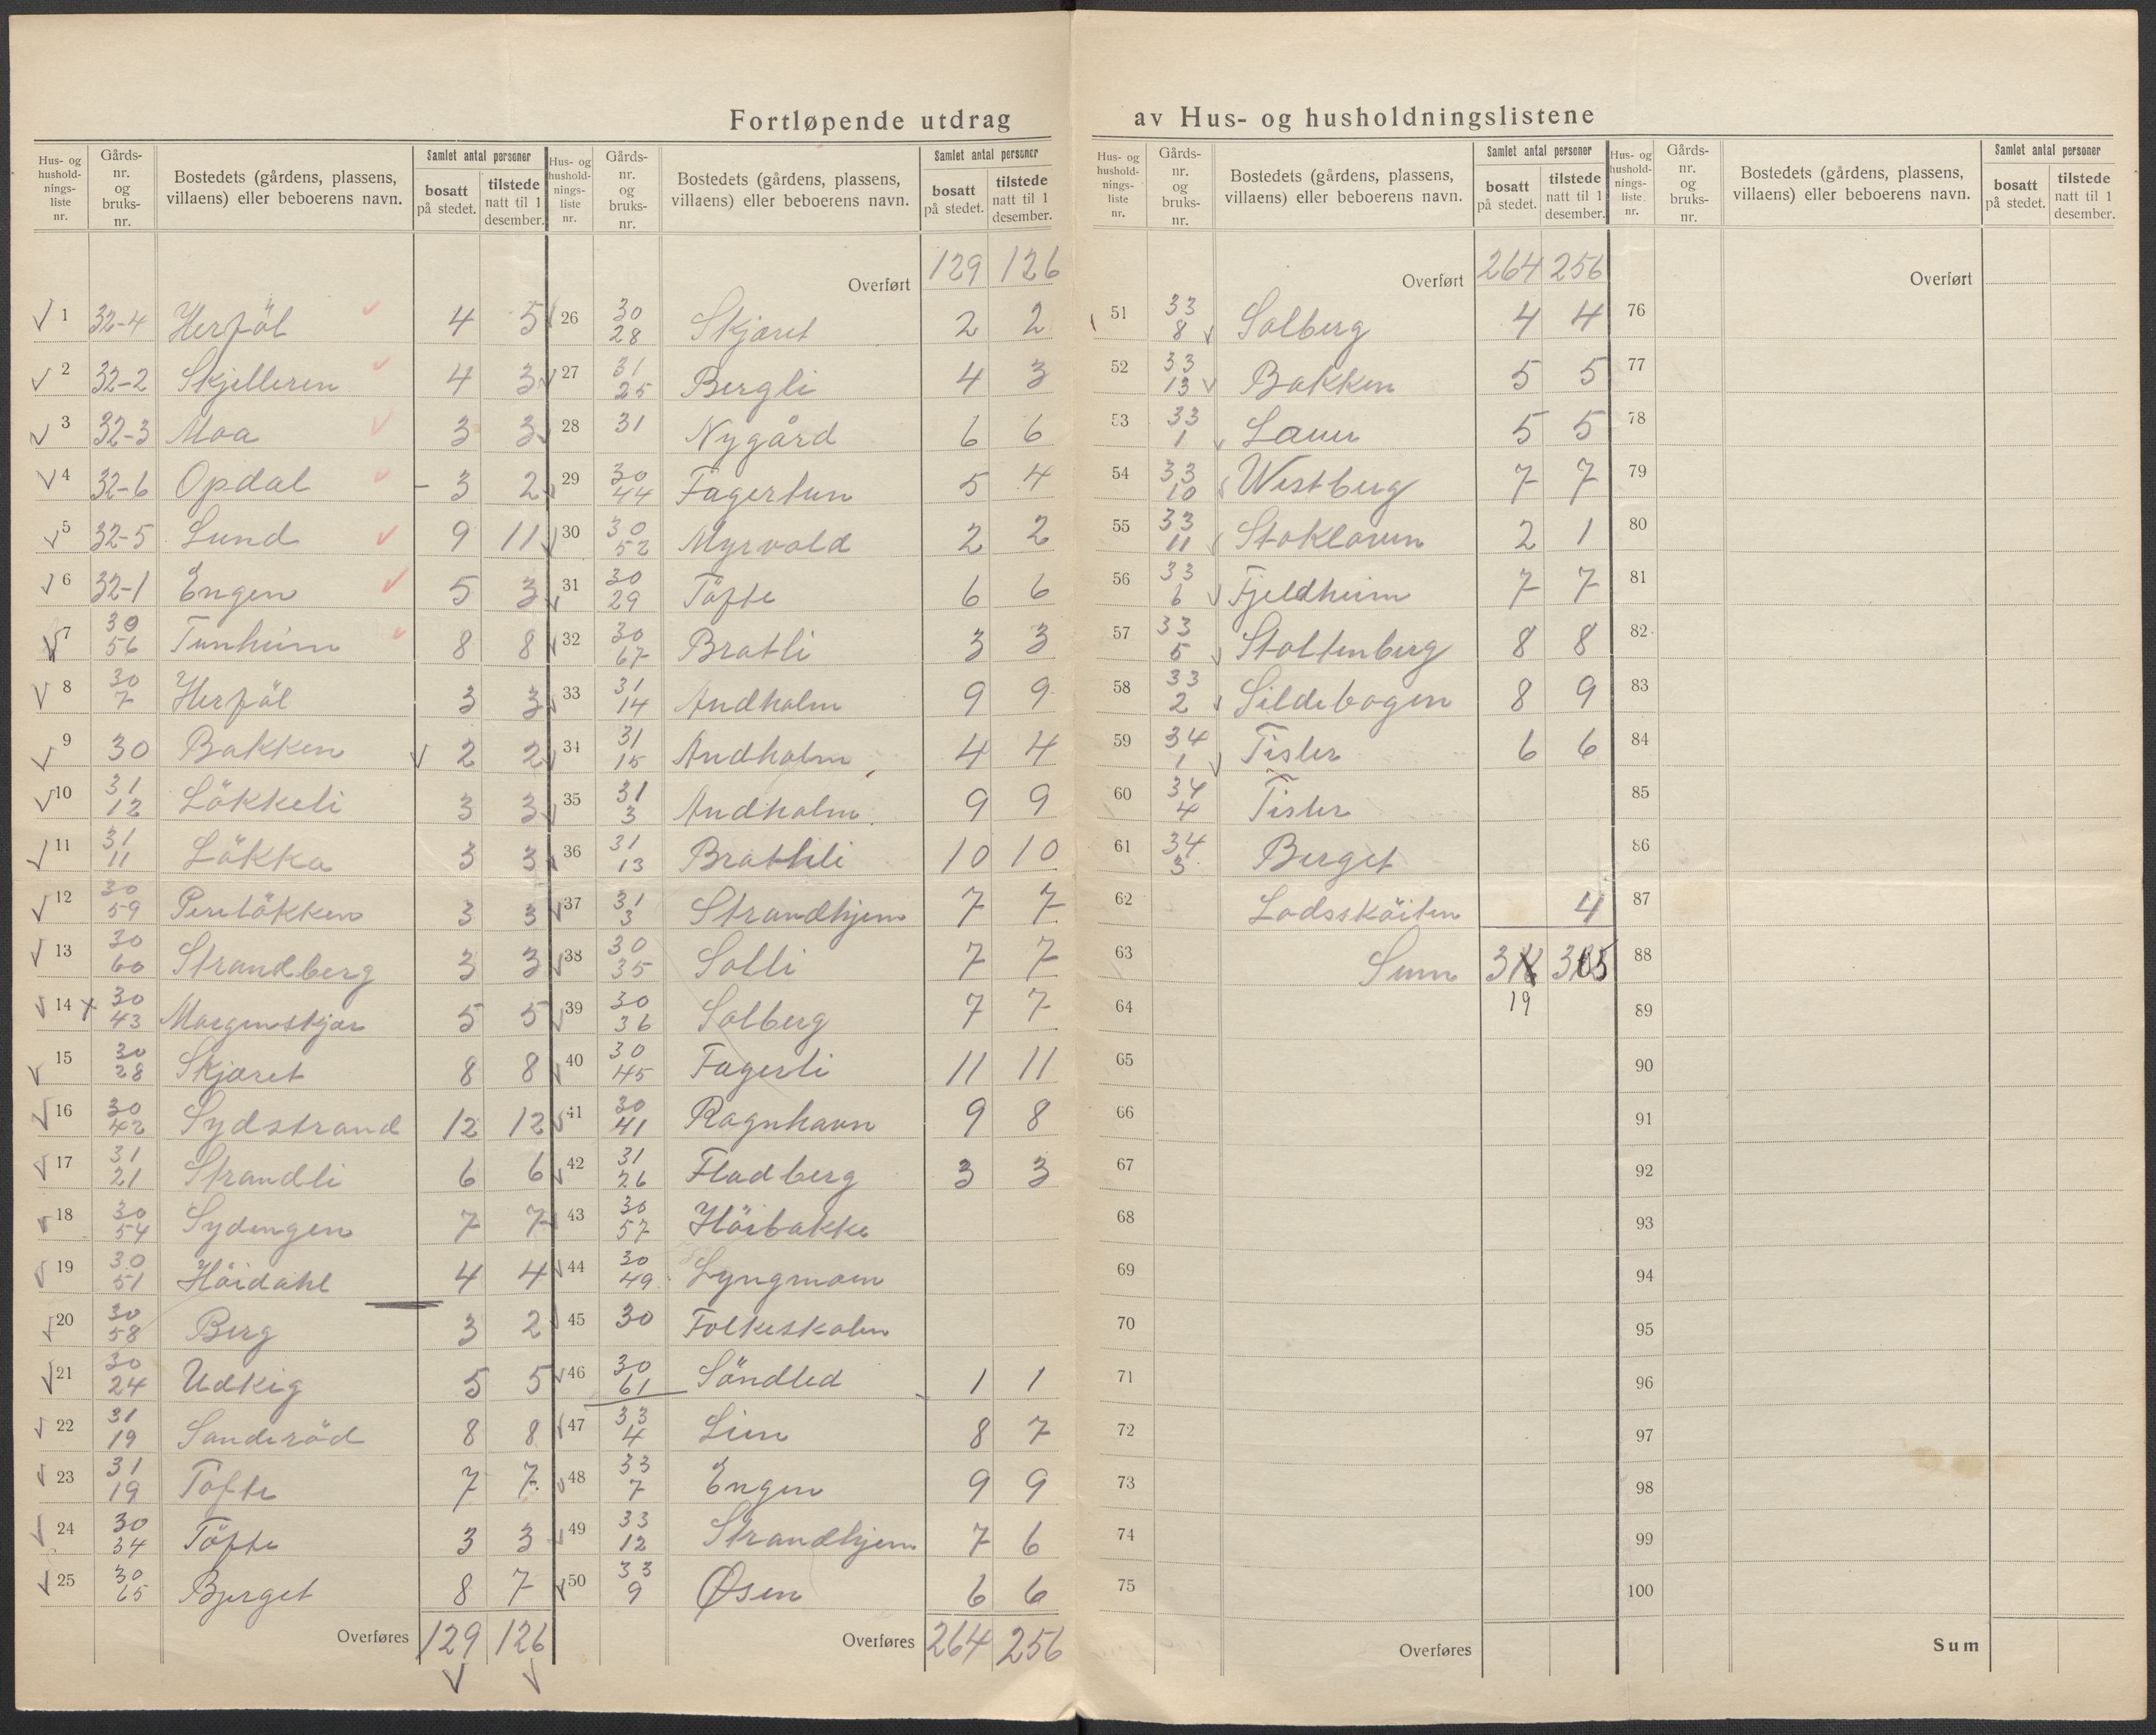 Fortløpende utdrag av Hus- og husholdningslistene
Hus- og husholdnings-liste nr. Gårds-nr. og bruks-nr. Bostedets (gårdens, plassens, villaens) eller beboerens navn. Samlet antal personer bosatt på stedet. tilstede natt til 1 desember.
1 32-4 Herföl 4 5
2 32-2 Skjelleren 4 3
3 32-3 Moa 3 3
4 32-6 Opdal - 3 2
5 32-5 Lund 9 11
6 32-1 Engen 5 3
7 30 56 Tunheim 8 8
8 30 7 Herföl 3 3
9 30 Bakken 2 2
10 31 12 Lökkeli 3 3
11 31 11 Lökka 3 3
12 30 59 Perelökken 3 3
13 30 60 Strandberg 3 3
14 x 30 43 Morgenskjær 5 5
15 30 28 Skjæret 8 8
16 30 42 Sydstrand 12 12
17 31 21 Strandli 6 6
18 30 54 Sydengen 7 7
19 30 51 Höidahl 4 4
20 30 58 Berg 3 2
21 30 24 Udkig 5 5
22 31 19 Sanderöd 8 8
23 31 19 Töfte 7 7
24 30 34 Töfte 3 3
25 30 65 Bjerget 8 7
Overføres 129 126
Hus- og husholdnings-liste nr. Gårds-nr. og bruks-nr. Bostedets (gårdens, plassens, villaens) eller beboerens navn. Samlet antal personer bosatt på stedet. tilstede natt til 1 desember.
Overført 129 126
26 30 28 Skjæret 2 2
27 31 25 Bergli 4 3
28 31 Nygård 6 6
29 30 44 Fagertun 5 4
30 30 52 Myrvold 2 2
31 30 29 Töfte 6 6
32 30 67 Bratli 3 3
33 31 14 Andholm 9 9
34 31 15 Andholm 4 4
35 31 3 Andholm 9 9
36 31 13 Brattli 10 10
37 31 3 Strandhjem 7 7
38 30 35 Solli 7 7
39 30 36 Solberg 7 7
40 30 45 Fagerli 11 11
41 30 41 Ragnhavn 9 8
42 31 26 Fladberg 3 3
43 30 57 Höibakke
44 30 49 Lyngmoen
45 30 Folkeskolen
46 30 61 Söndled 1 1
47 33 4 Lien 8 7
48 33 7 Engen 9 9
49 33 12 Strandhjem 7 6
50 33 9 Øsen 6 6
Overføres 264 256
Hus- og husholdnings-liste nr. Gårds-nr. og bruks-nr. Bostedets (gårdens, plassens, villaens) eller beboerens navn. Samlet antal personer bosatt på stedet. tilstede natt til 1 desember.
Overført 264 256
51 33 8 Solberg 4 4
52 33 13 Bakken 5 5
53 33 1 Lauer 5 5
54 33 10 Westberg 7 7
55 33 11 Stoklaven 2 1
56 33 6 Fjeldheim 7 7
57 33 5 Stoltenberg 8 8
58 33 2 Sildebogen 8 9
59 34 1 Tisler 6 6
60 34 4 Tisler
61 34 3 Berget
62 Lodssköiten 4
63 Sum
64 19
65
66
67
68
69
70
71
72
73
74
75
Overføres
Hus- og husholdnings-liste nr. Gårds-nr. og bruks-nr. Bostedets (gårdens, plassens, villaens) eller beboerens navn. Samlet antal personer bosatt på stedet. tilstede natt til 1 desember.
Overført
76
77
78
79
80
81
82
83
84
85
86
87
88
89
90
91
92
93
94
95
96
97
98
99
100
Sum